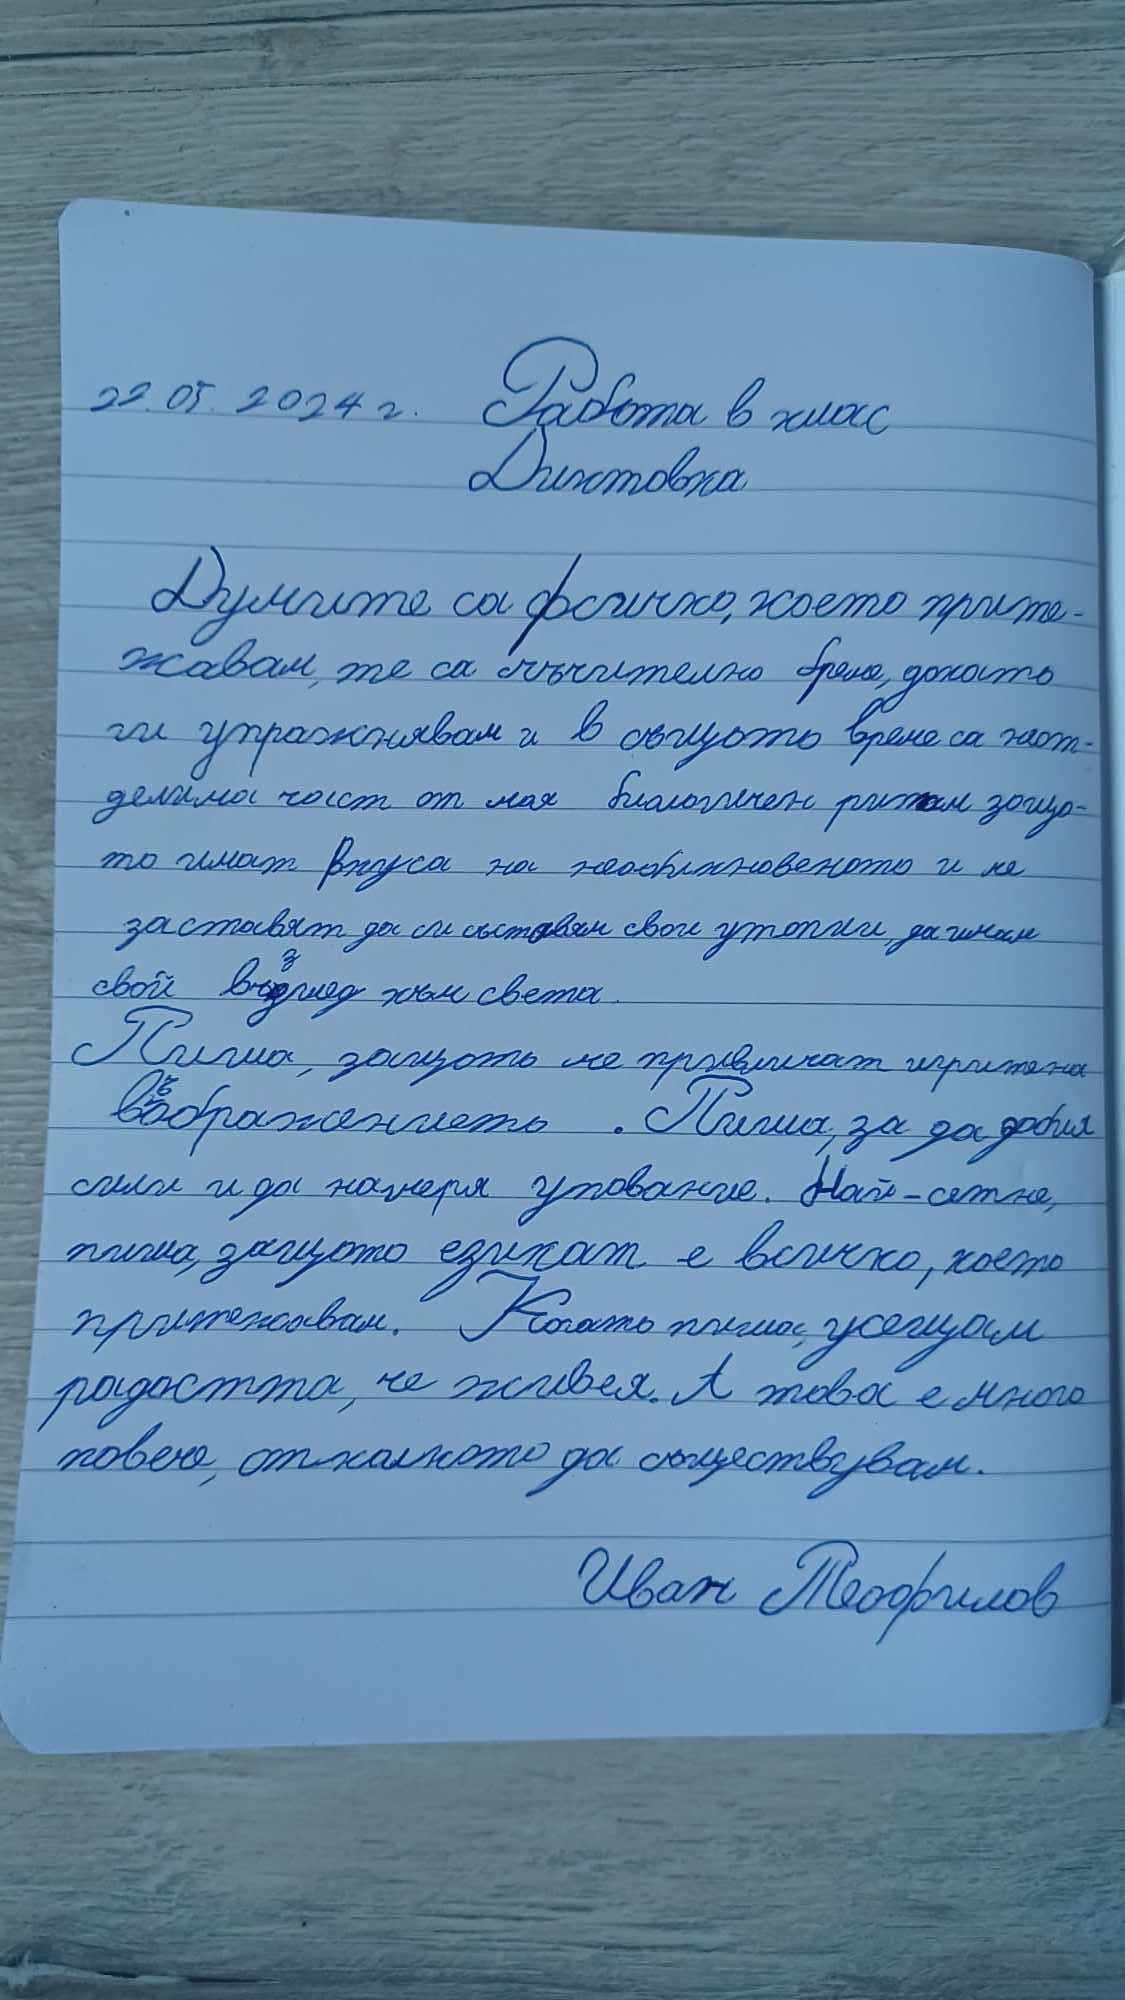 22.05.2024г. Работа в клас
Диктовка
Думите са фсичко, което прите-
жавам, те са мъчително бреме, докато
ги упражнявам и в същото време са неот-
делима част от моя биологичен ритъм защо-
то имат вкуса на необикновеното и ме
заставят да си съставям свои утопии, да имам
свой възглед към света.
Пиша, защото ме привличат игрите на
въображението. Пиша, за да добия
сили и да намеря упование. Най-сетне,
пиша, защото езикът е всичко, което
притежавам. Когато пиша, усещам
радостта, че живея. А това е много
повече, отколкото да съществувам.
Иван Теофилов